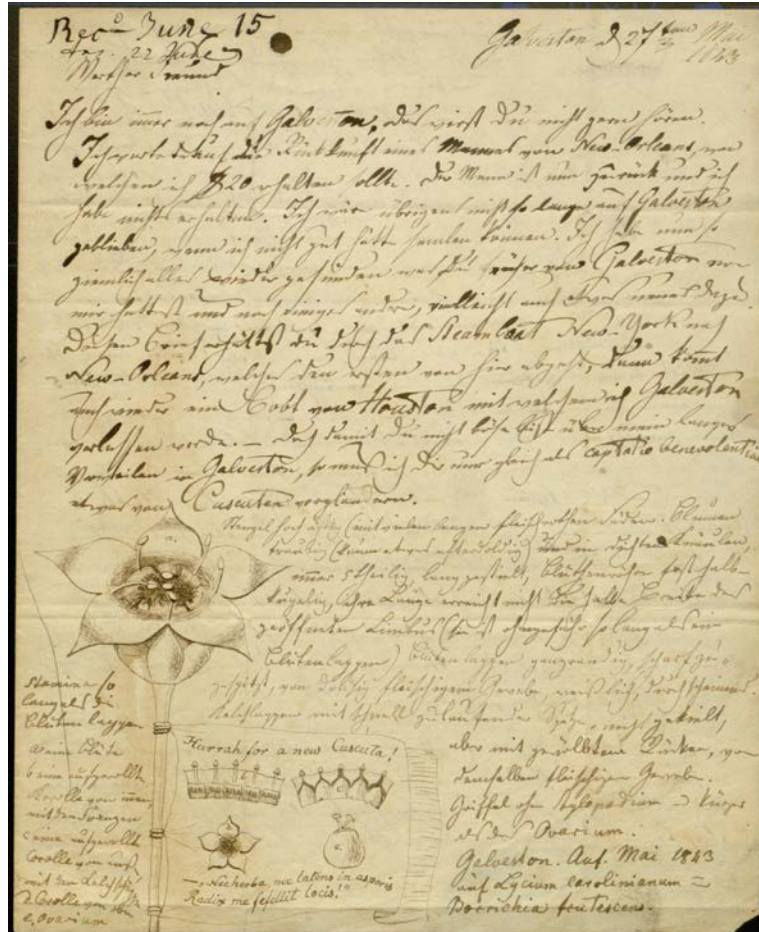 Rec^d June 15
22 June
Werther Freund
Galveston d 27^ten Mai
1843
Ich bin immer noch auf Galveston, das wirst Du nicht gern hören.
Ich wartete auf die Rückkunft eines Mannes von New-Orleans, von
welchem ich $20 erhalten sollte. Der Mann ist nun zurück und ich
habe nichts erhalten. Ich wäre übrigens nicht so lange auf Galveston
geblieben, wenn ich nicht gut hätte samlen können. Ich habe nun so
ziemlich alles wieder gefunden was Du früher von Galveston von
mir hattest und noch einiges andre, vielleicht auch etwas neues dazu.
Diesen Brief erhältst Du durch das Steamboat New-York nach
New-Orleans, welches den ersten von hier abgeht, dann komt
auch wieder ein Bobt von Houston mit welchem ich Galveston
verlassen werde. — Doch damit Du nicht böse bist über mein langes
Verweilen in Galveston, so muß ich Dir nur gleich als captatio benevolentiae
etwas von Cuscuten vorplaudern.
Stengel hoch ästig (mit vielen langen fleischrothen Fäden. Blumen
traubig (kaum etwas afterdoldig) und in dichten Knäulen,
immer 5theilig, lang gestielt, Blüthenröhre fast halb-
kugelig, ihre Länge erreicht nicht die halbe Breite des
geöffneten Limbus (sie ist ohngefähr so lang als ein
Blütenlappen) Blütenlappen ganzrandig, scharf zu-
gespitzt, von fleischigem Gewebe, weißlich, durchscheinend.
Kelchlappen mit schnell zulaufender Spitze, nicht gekielt,
aber mit gewölbtem Rücken, von
demselben fleischigen Gewebe.
Griffel ohne Stylopodium = kürzer
als das Ovarium.
Galveston. Anf. Mai 1843
auf Lycium carolinianum =
Borrichia frutescens.
Stamina so
lang als die
Blütenlappen
a eine Blüte
b eine aufgerollte
Corolle von innen
mit den Frangen
c eine aufgerollte
Corolle von auß.
mit den Kelch
d. Corolle von oben
e. Ovarium
a.
Hurrah for a new Cuscuta!
b
c
d
e.
— „Nec herba, nec latens in asperis
Radix me fefellit locis!"